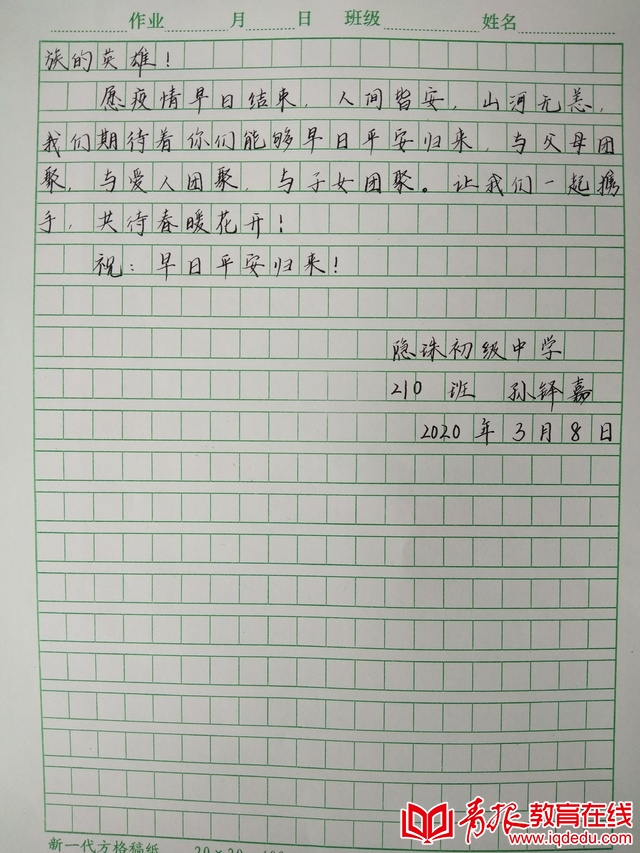 作业 月 日 班级 姓名
族的英雄！
愿疫情早日结束，人间皆安，山河无恙，
我们期待着你们能够早日平安归来，与父母团
聚，与爱人团聚，与子女团聚。让我们一起携
手，共待春暖花开！
祝：早日平安归来！
隐珠初级中学
210 班 孙铎嘉
2020 年 3 月 8 日
新一代方格稿纸 20×20
青报教育在线
www.iqdedu.com